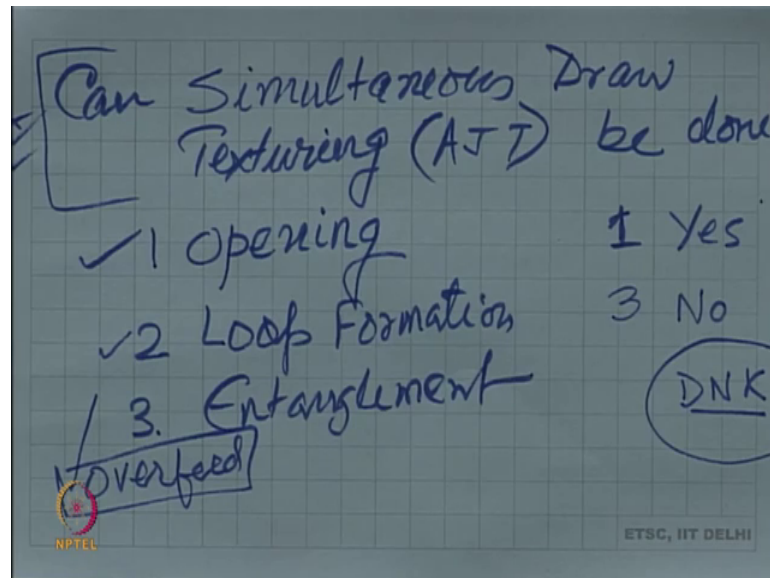 Can Simultaneous Draw
Texturing (AJT) be done
1 Opening 1 Yes
2 Loop Formation 3 No
3. Entanglement DNK
overfeed
NPTEL
ETSC, IIT DELHI